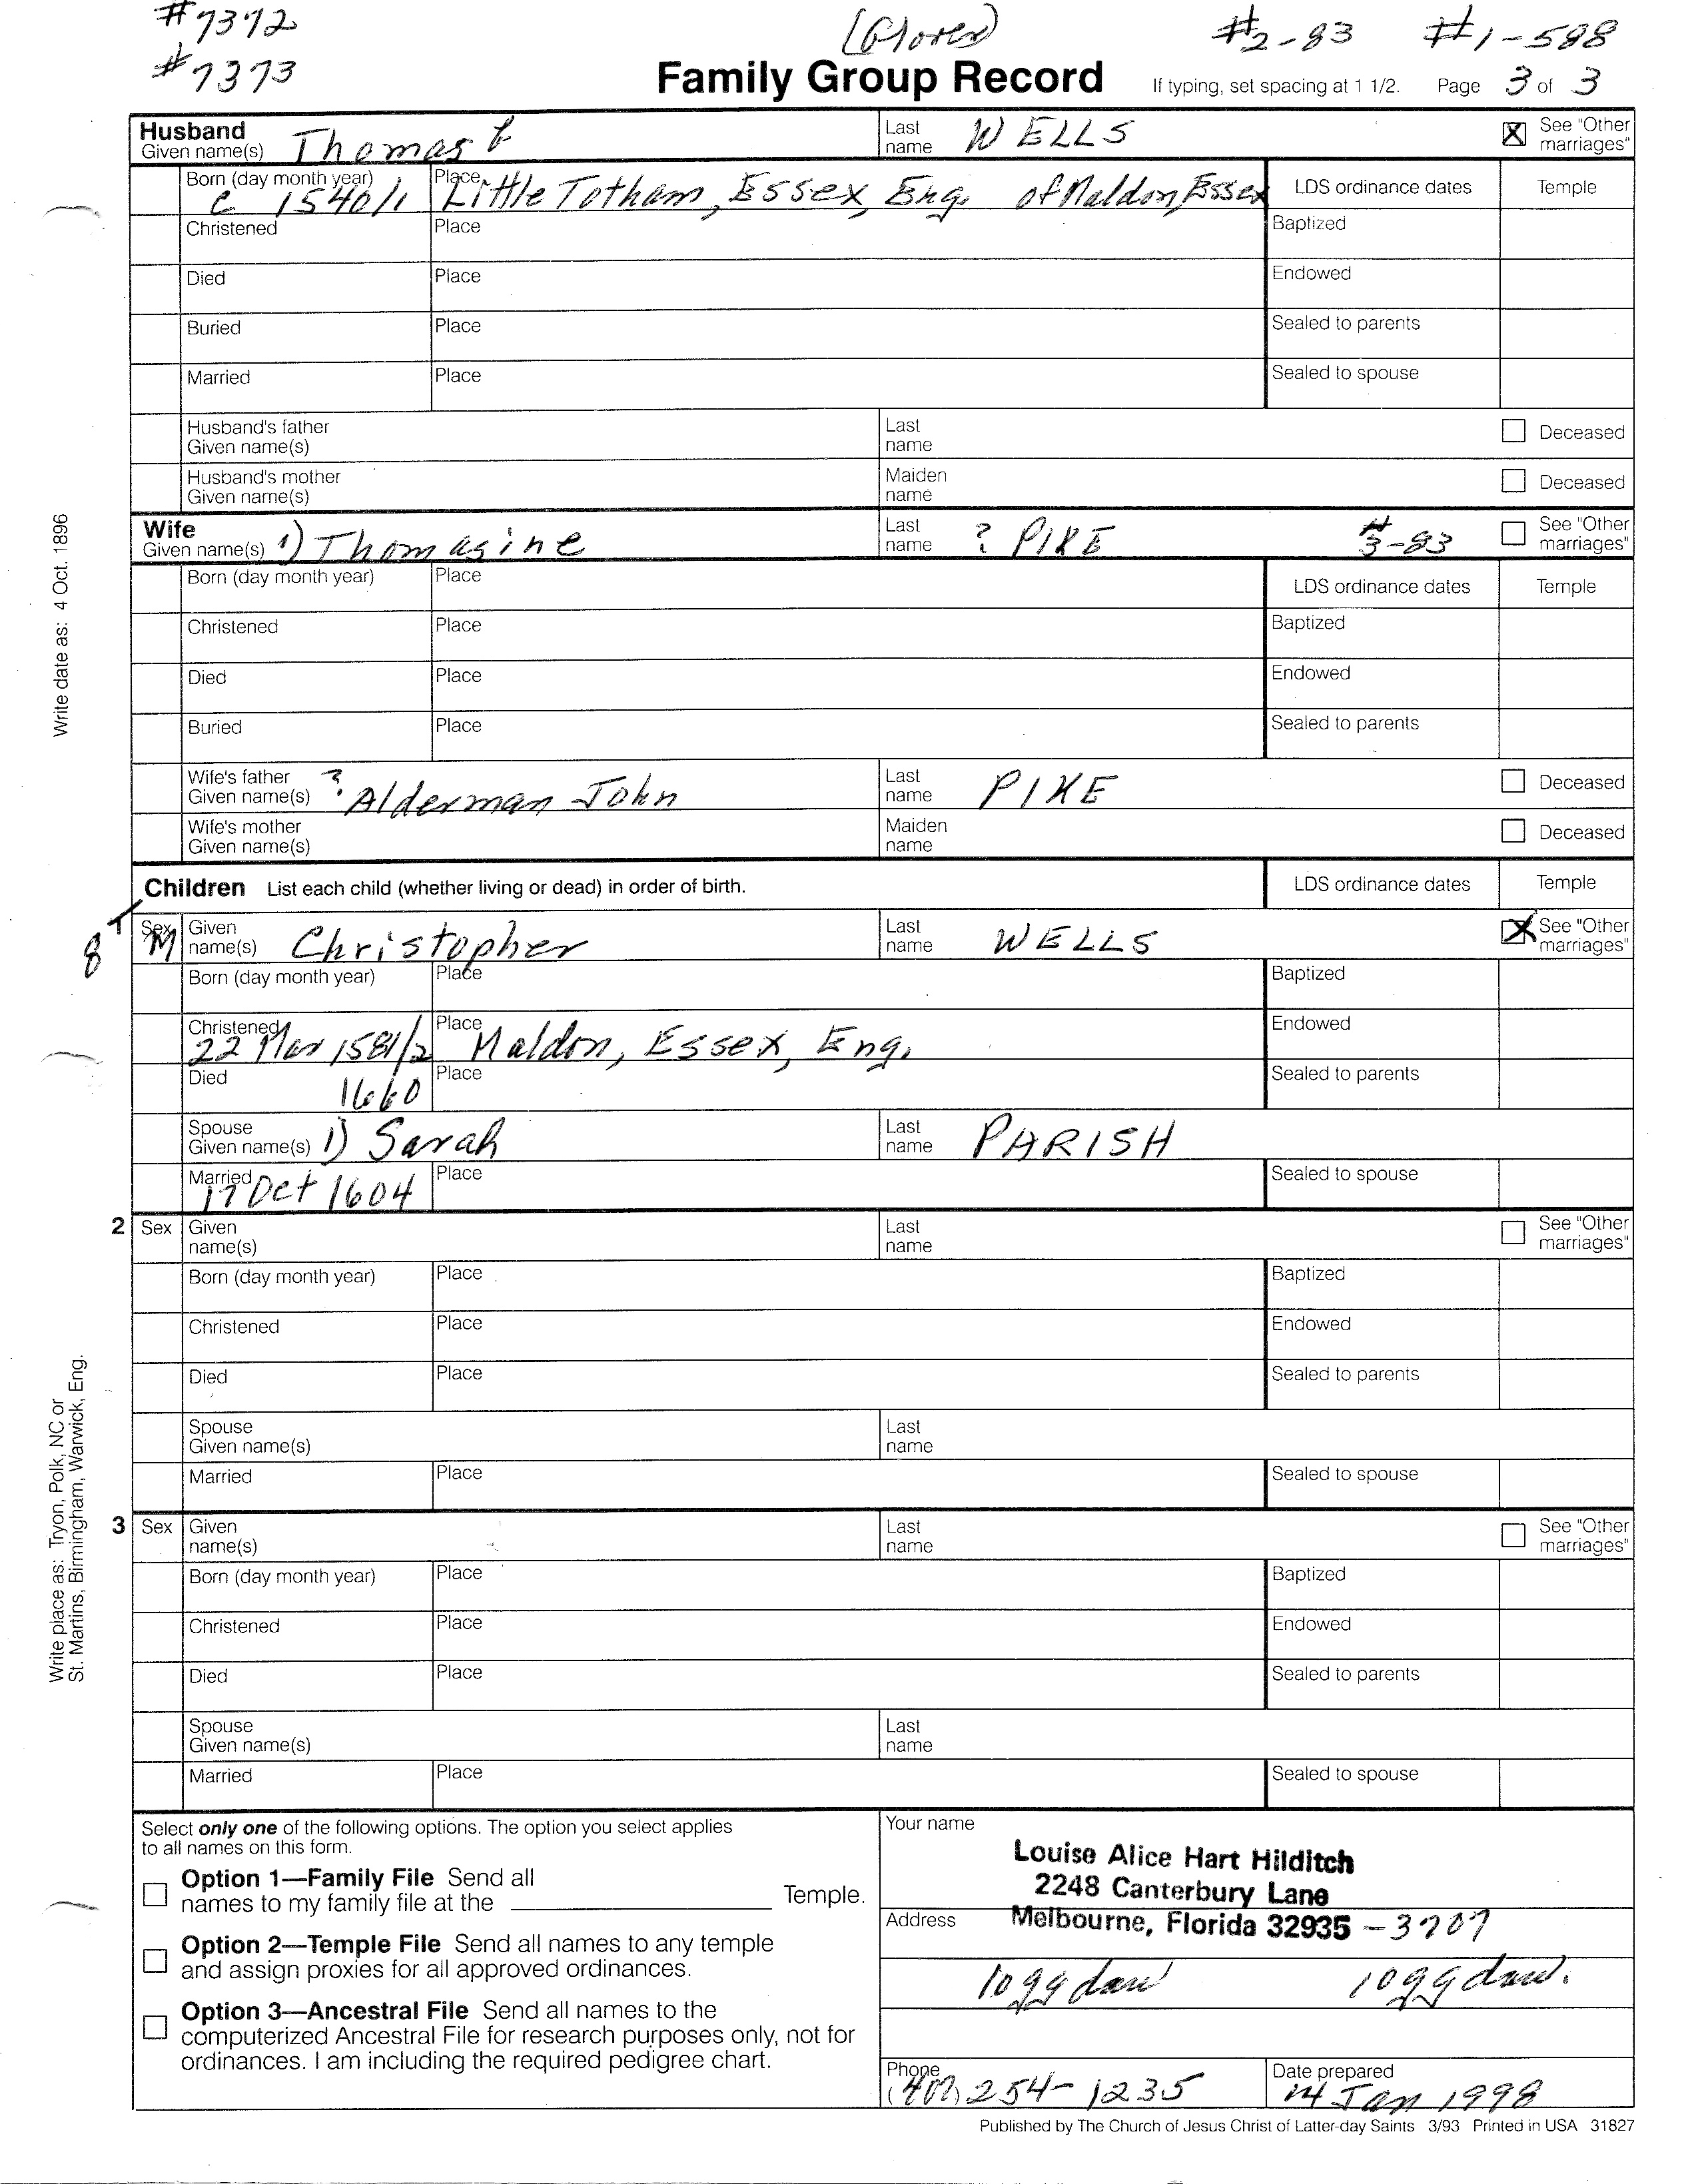 #7372 (Glover) #2-83 #1-588
#7373 Family Group Record If typing, set spacing at 1 1/2. Page 3 of 3
Husband Given name(s) Thomas Last name WELLS See "Other marriages"
Born (day month year) c 1540/1 Place Little Totham, Essex, Eng. of Maldon, Essex LDS ordinance dates Temple
Christened Place Baptized
Died Place Endowed
Buried Place Sealed to parents
Married Place Sealed to spouse
Husband's father Given name(s) Last name Deceased
Husband's mother Given name(s) Maiden name Deceased
Wife Given name(s) 1) Thomasine Last name ? PIKE #3-83 See "Other marriages"
Born (day month year) Place LDS ordinance dates Temple
Christened Place Baptized
Died Place Endowed
Buried Place Sealed to parents
Wife's father Given name(s) ? Alderman John Last name PIKE Deceased
Wife's mother Given name(s) Maiden name Deceased
Children List each child (whether living or dead) in order of birth. LDS ordinance dates Temple
1 8 Sex M Given name(s) Christopher Last name WELLS See "Other marriages"
Born (day month year) Place Baptized
Christened 22 Mar 1581/2 Place Maldon, Essex, Eng. Endowed
Died 1660 Place Sealed to parents
Spouse Given name(s) 1) Sarah Last name PARISH
Married 17 Oct 1604 Place Sealed to spouse
2 Sex Given name(s) Last name See "Other marriages"
Born (day month year) Place Baptized
Christened Place Endowed
Died Place Sealed to parents
Spouse Given name(s) Last name
Married Place Sealed to spouse
3 Sex Given name(s) Last name See "Other marriages"
Born (day month year) Place Baptized
Christened Place Endowed
Died Place Sealed to parents
Spouse Given name(s) Last name
Married Place Sealed to spouse
Write date as: 4 Oct. 1896
Write place as: Tryon, Polk, NC or
St. Martins, Birmingham, Warwick, Eng.
Select only one of the following options. The option you select applies
to all names on this form.
Option 1—Family File Send all
names to my family file at the Temple.
Option 2—Temple File Send all names to any temple
and assign proxies for all approved ordinances.
Option 3—Ancestral File Send all names to the
computerized Ancestral File for research purposes only, not for
ordinances. I am including the required pedigree chart.
Your name
Louise Alice Hart Hilditch
2248 Canterbury Lane
Address Melbourne, Florida 32935 -3707
10gg dau 10gg dau.
Phone (407) 254-1235 Date prepared 14 Jan 1998
Published by The Church of Jesus Christ of Latter-day Saints 3/93 Printed in USA 31827